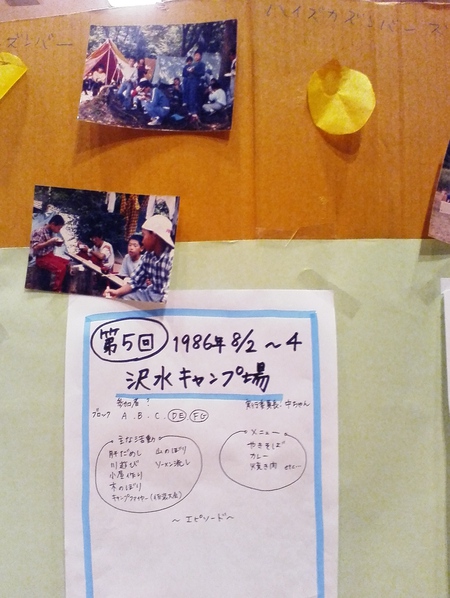 ズンバー
ハイスカズーバーズ
第5回 1986年8/2~4
沢水キャンプ場
参加者 ? 実行委員長:中ちゃん
ブロック A.B.C. DE FG
主な活動
肝だめし 山のぼり
川遊び ソーメン流し
小屋作り
木のぼり
キャンプファイヤー
メニュー
やきそば
カレー
焼き肉
~エピソード~